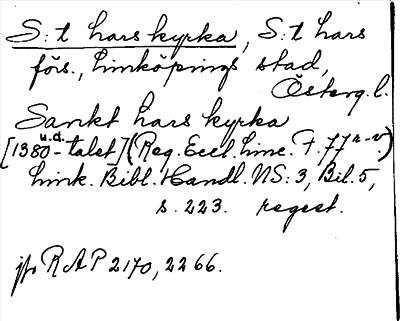 S:t Lars kyrka, S:t Lars
förs., Linköpings stad,
Österg. l.
Sankt Lars kyrka
u.d.
[1380-talet] (Reg. Eccl. Linc. F. 77 r-v)
Link. Bibl. Handl. NS: 3, Bil. 5,
s. 223. regest.
jfr RAP 2170, 2266.